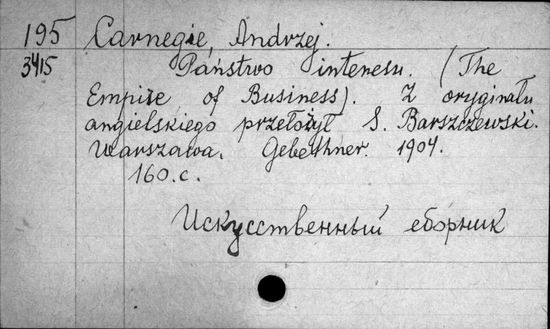 195 Carnegie, Andrzej.
3415 Państwo interesu. (The
Empire of Business). Z oryginału
angielskiego przełożył S. Barszczewski.
Warszawa. Gebethner. 1904.
160.c.
Искусственный сборник